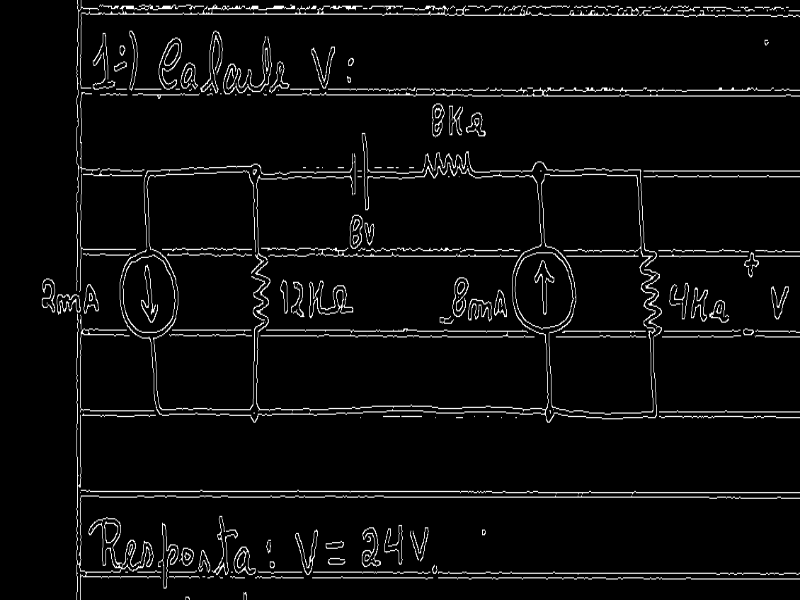 1-) Calcule V:
8KΩ
8v
2mA 12KΩ 8mA 4KΩ + V -
Resposta: V = 24V.